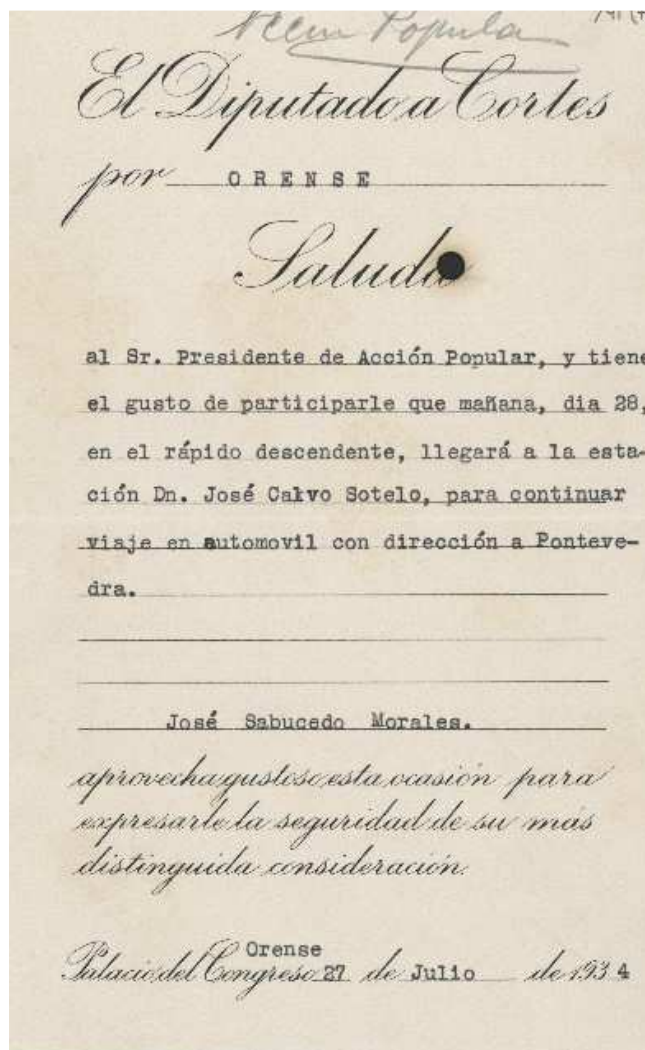 Popular
El Diputado a Cortes
por ORENSE
Saluda
al Sr. Presidente de Acción Popular, y tiene
el gusto de participarle que mañana, dia 28,
en el rápido descendente, llegará a la esta-
ción Dn. José Calvo Sotelo, para continuar
viaje en automovil con dirección a Ponteve-
dra.
José Sabucedo Morales.
aprovecha gustoso esta ocasión para
expresarle la seguridad de su más
distinguida consideración.
Orense
Palacio del Congreso 27 de Julio de 1934